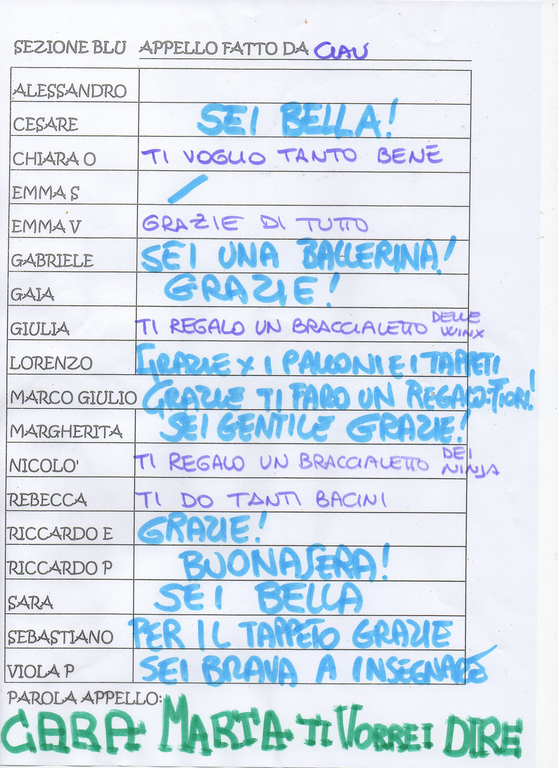 SEZIONE BLU APPELLO FATTO DA CLAU
ALESSANDRO
CESARE SEI BELLA!
CHIARA O TI VOGLIO TANTO BENE
EMMA S
EMMA V GRAZIE DI TUTTO
GABRIELE SEI UNA BALLERINA!
GAIA GRAZIE!
GIULIA TI REGALO UN BRACCIALETTO DELLE WINX
LORENZO GRAZIE X I PALLONI E I TAPPETI
MARCO GIULIO GRAZIE TI FARO UN REGALO-FIORI!
MARGHERITA SEI GENTILE GRAZIE!
NICOLO' TI REGALO UN BRACCIALETTO DEI NINJA
REBECCA TI DO TANTI BACINI
RICCARDO E GRAZIE!
RICCARDO P BUONASERA!
SARA SEI BELLA
SEBASTIANO PER IL TAPPETO GRAZIE
VIOLA P SEI BRAVA A INSEGNARE
PAROLA APPELLO:
CARA MARTA TI VORREI DIRE